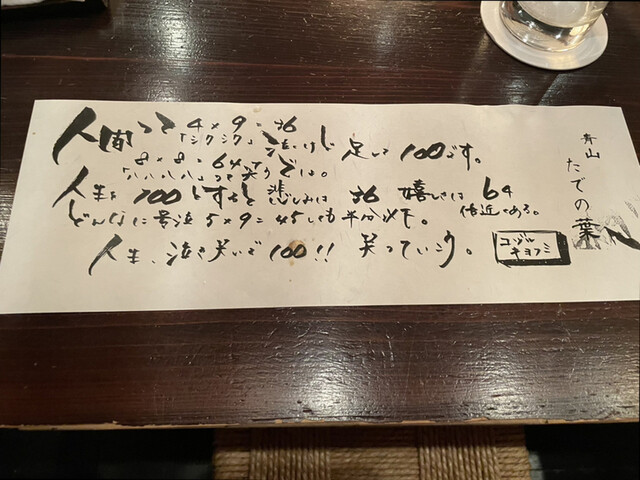 人間って 4×9=36
「シクシク」泣くけど 足して 100です。
8×8=64で
「ハハハハ」って笑う
人生を 100とすると 悲しみは 36 嬉しさは 64
どんなに号泣 5×9=45しても 半分以下。 倍近くある。
人生、泣き笑いで 100!! 笑っていこう。
コヅル
キヨフミ
青山
たでの葉